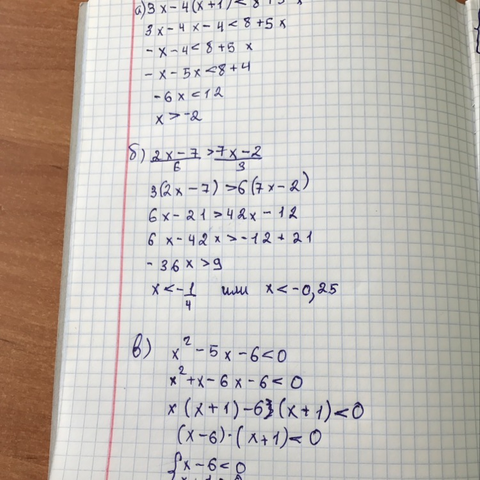 а) 3x-4(x+1)<8+5x
3x-4x-4<8+5x
-x-4<8+5x
-x-5x<8+4
-6x<12
x>-2
б) 2x-7/6 > 7x-2/3
3(2x-7)>6(7x-2)
6x-21>42x-12
6x-42x>-12+21
-36x>9
x<-1/4 или x<-0,25
в) x²-5x-6<0
x²+x-6x-6<0
x(x+1)-6(x+1)<0
(x-6)·(x+1)<0
{x-6<0